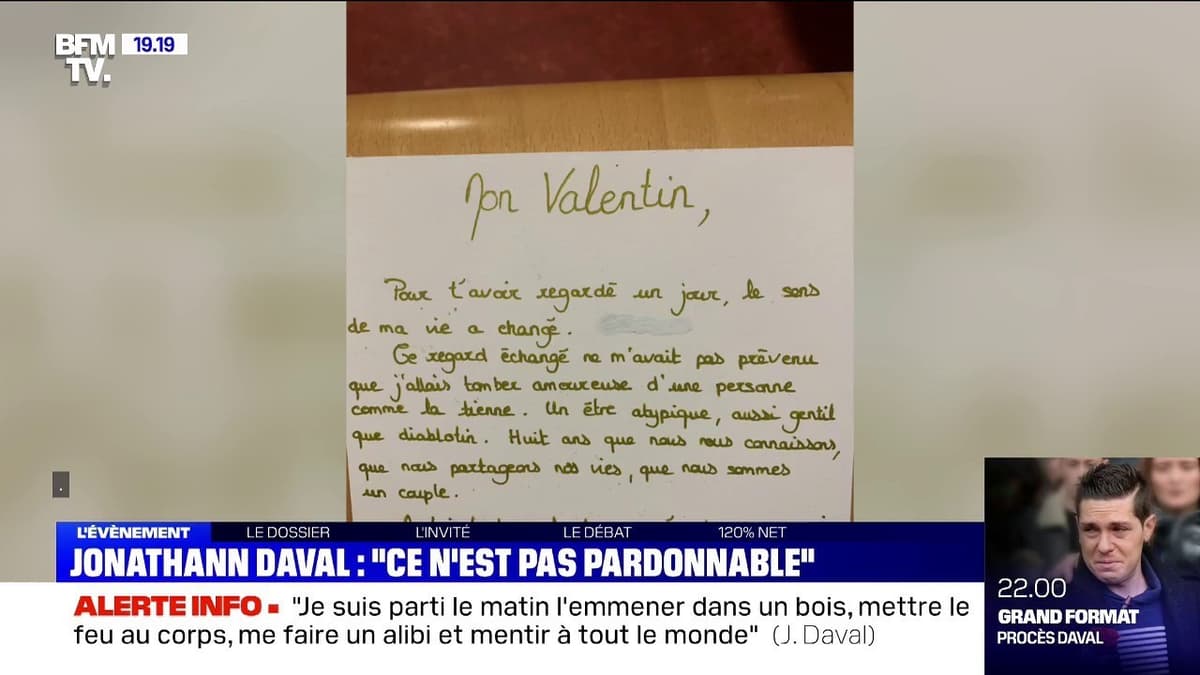 BFM 19.19
TV.
Mon Valentin,
Pour t'avoir regardé un jour, le sens
de ma vie a changé.
Ce regard échangé ne m'avait pas prévenu
que j'allais tomber amoureuse d'une personne
comme la tienne. Un être atypique, aussi gentil
que diablotin. Huit ans que nous nous connaissons,
que nous partageons nos vies, que nous sommes
un couple.
L'ÉVÈNEMENT LE DOSSIER L'INVITÉ LE DÉBAT 120% NET
JONATHANN DAVAL : "CE N'EST PAS PARDONNABLE"
ALERTE INFO "Je suis parti le matin l'emmener dans un bois, mettre le
feu au corps, me faire un alibi et mentir à tout le monde" (J. Daval)
22.00
GRAND FORMAT
PROCÈS DAVAL